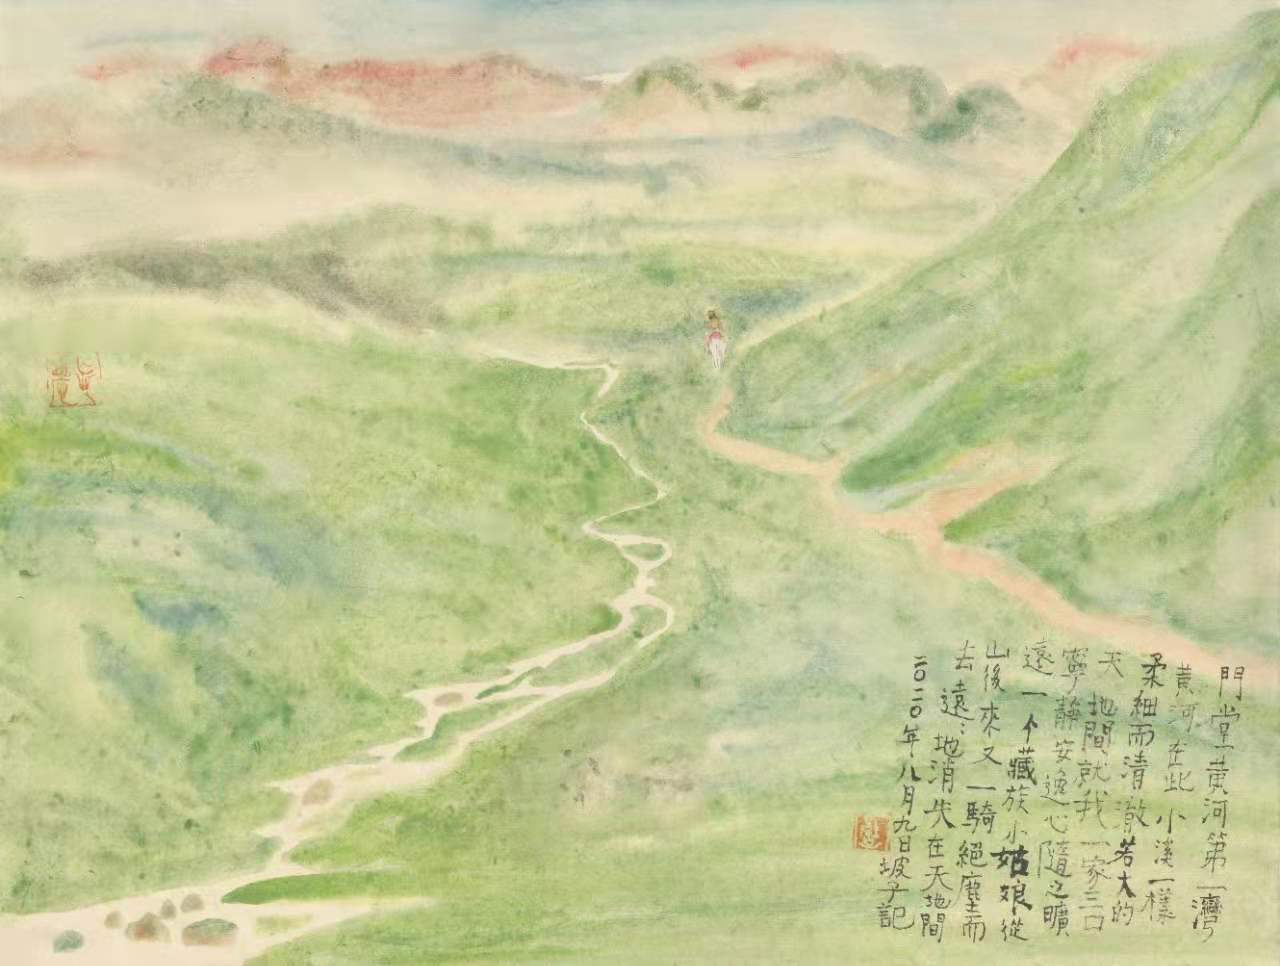 門堂黄河第一灣
黄河在此小溪一樣
柔細而清澈若大的
天地間就我一家三口
寧靜安逸心隨之曠
遠一个藏族小姑娘從
山後來又一騎絕塵而
去遠〻地消失在天地間
二〇二〇年八月九日坡子記